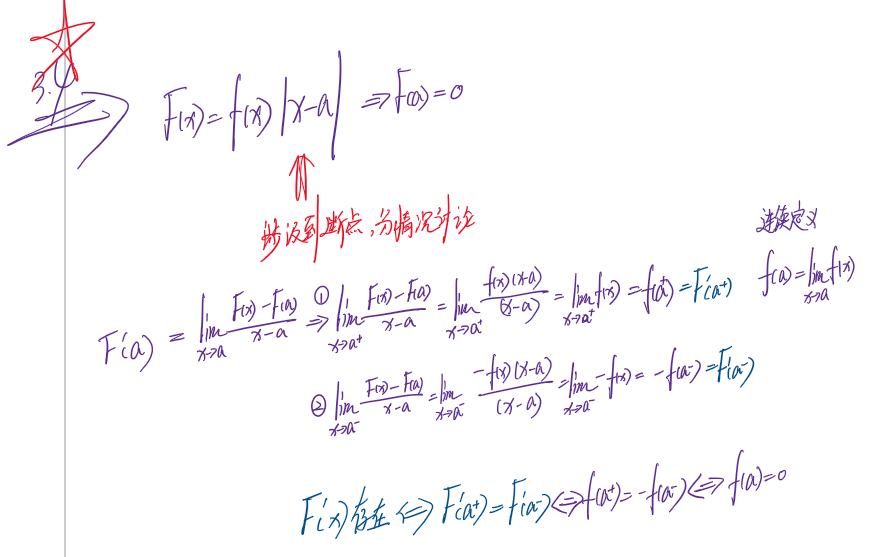 3.4
F(x)=f(x)|x-a| ⇒F(a)=0
涉及到断点,分情况讨论
连续定义
f(a)=lim x→a f(x)
F'(a) = lim x→a (F(x)-F(a))/(x-a) ⇒ ① lim x→a⁺ (F(x)-F(a))/(x-a) = lim x→a⁺ (f(x)(x-a))/(x-a) = lim x→a⁺ f(x) = f(a⁺) = F'(a⁺)
② lim x→a⁻ (F(x)-F(a))/(x-a) = lim x→a⁻ (-f(x)(x-a))/(x-a) = lim x→a⁻ -f(x) = -f(a⁻) = F'(a⁻)
F'(x)存在⇔F'(a⁺)=F'(a⁻)⇔f(a⁺)=-f(a⁻)⇔f(a)=0